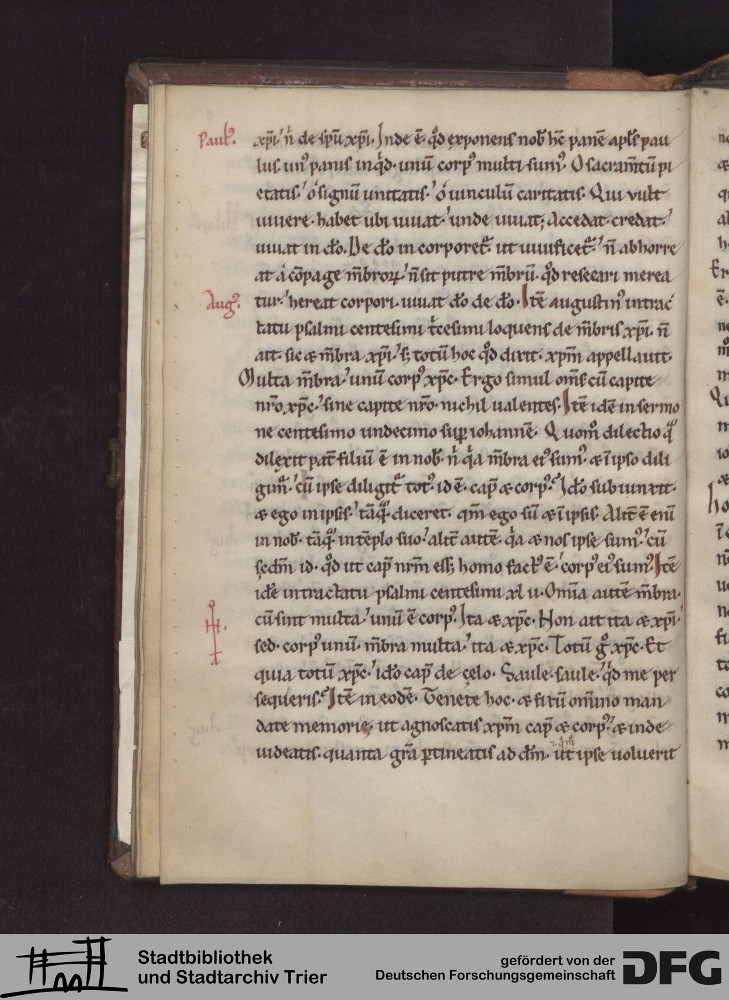 Paul⁹. xp̄i.' n̄ de sp̄u xp̄i. Inde ē. qd̄ exponens nob̄ hc̄ panē apl̄s pau
lus. un⁹ panis inq̇d. unū corp⁹ multi sum⁹. O sacram̄tū pi
etatis.' o signū unitatis.' o uinculū caritatis. Qui uult
uiuere. habet ubi uiuat.' unde uiuat; Accedat. credat.'
uiuat in do. De do in corporet᷑. ut uiuificet᷑.' n̄ abhorre
at a cōpage m̄broꝝ.' n̄ sit putre m̄brū. qd̄ resecari merea
Aug⁹. tur.' hereat corpori. uiuat do de do. Itē augustin⁹ in trac
tatu psalmi centesimi t̄cesimi loquens de m̄bris xp̄i. n̄
ait. sic & m̄bra xp̄i.' s; totū hoc qd̄ dixit. xp̄m appellauit.
Multa m̄bra.' unū corp⁹ xp̄c. Ergo simul om̄s cū capite
nr̄o xp̄c.' sine capite nr̄o. nichil ualentes. Itē idē in sermo
ne centesimo undecimo sup̄ iohannē. Quom̊ dilectio q̄
dilexit pat̄ filiū ē in nob̄. n̄ q̇a m̄bra ei⁹ sum⁹. & ī ipso dili
gim̄.' cū ipse diligit᷑ tot⁹. id ē. cap̄ & corp⁹. Ido subiunxit.
& ego in ipsis.' tāq̄ diceret. qm̄ ego sū & ī ipsis. Alit̄ ē enī
in nob̄. tāq̄ in tēplo suo.' alit̄ autē. q̇a & nos ipse sum⁹.' cū
sc̄dm id. qd̄ ut cap̄ nr̄m ess; homo fact⁹ ē.' corp⁹ ei⁹ sum⁹. Itē
idē in tractatu psalmi centesimi xl u. Om̄ia autē m̄bra.
cū sint multa.' unū ē corp⁹. Ita & xp̄c. Non ait ita & xp̄i.'
sed. corp⁹ unū. m̄bra multa.' ita & xp̄c. Totū g̊ xp̄c. Et
quia totū xp̄c.' ido cap̄ de celo. Saule. saule.' qd̄ me per
sequeris. Itē in eodē. Tenete hoc. & fixū om̄ino man
date memorie. ut agnoscatis xp̄m cap̄ & corp⁹.' & inde
uideatis. quanta gr̄a p̄tineatis ad dm̄. ut ipse uoluerit
Stadtbibliothek
und Stadtarchiv Trier
gefördert von der
Deutschen Forschungsgemeinschaft
DFG